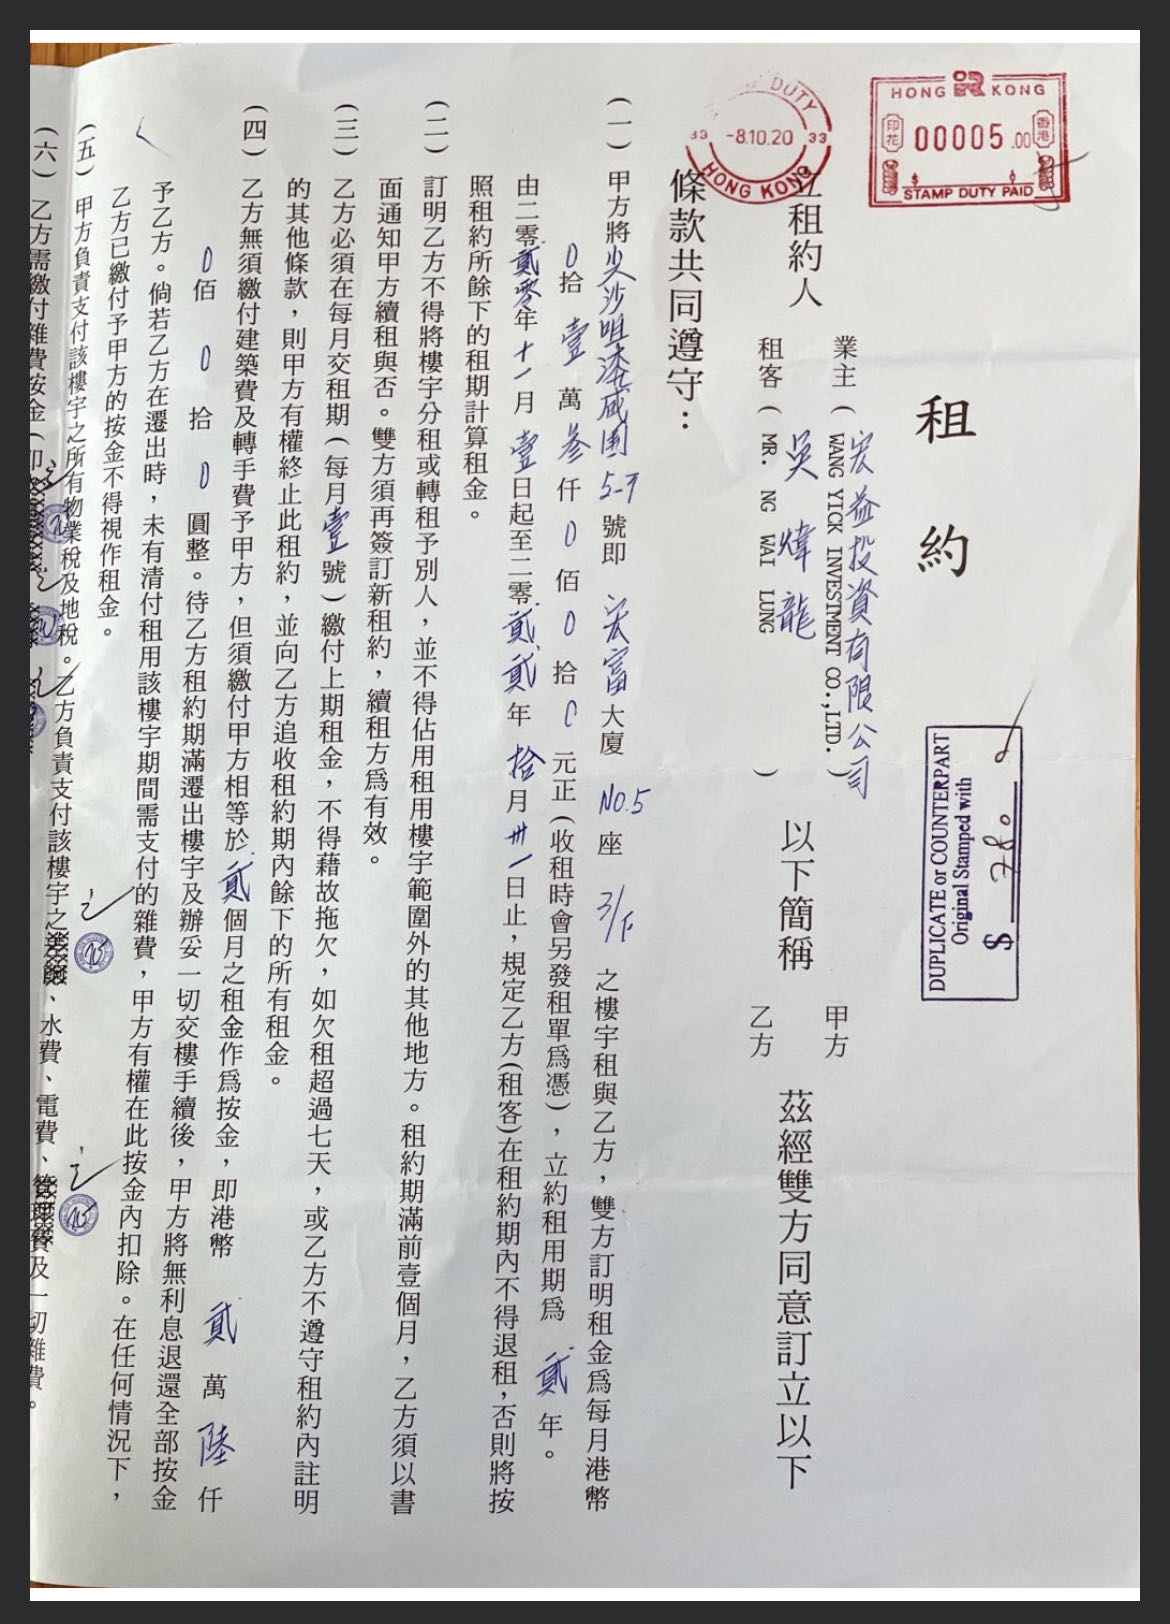 HONG KONG
印花
00005.00
香港
$ $
STAMP DUTY PAID
STAMP DUTY
33 -8.10.20 33
HONG KONG
租約
DUPLICATE or COUNTERPART
Original Stamped with
$ 780
立租約人
業主(宏益投資有限公司
WANG YICK INVESTMENT CO.,LTD.)
租客(吳煒龍
MR. NG WAI LUNG )
以下簡稱
甲方
乙方
茲經雙方同意訂立以下
條款共同遵守:
(一)甲方將尖沙咀漆咸圍5-7號即宏富大廈No.5座3/F之樓宇租與乙方,雙方訂明租金爲每月港幣
0拾壹萬叁仟0佰0拾0元正(收租時會另發租單爲憑),立約租用期爲貳年。
由二零貳零年十一月壹日起至二零貳貳年拾月卅一日止,規定乙方(租客)在租約期內不得退租,否則將按
照租約所餘下的租期計算租金。
(二)訂明乙方不得將樓宇分租或轉租予別人,並不得佔用租用樓宇範圍外的其他地方。租約期滿前壹個月,乙方須以書
面通知甲方續租與否。雙方須再簽訂新租約,續租方爲有效。
(三)乙方必須在每月交租期(每月壹號)繳付上期租金,不得藉故拖欠,如欠租超過七天,或乙方不遵守租約內註明
的其他條款,則甲方有權終止此租約,並向乙方追收租約期內餘下的所有租金。
(四)乙方無須繳付建築費及轉手費予甲方,但須繳付甲方相等於貳個月之租金作爲按金,即港幣貳萬陸仟
0佰0拾0圓整。待乙方租約期滿遷出樓宇及辦妥一切交樓手續後,甲方將無利息退還全部按金
予乙方。倘若乙方在遷出時,未有清付租用該樓宇期間需支付的雜費,甲方有權在此按金內扣除。在任何情況下,
乙方已繳付予甲方的按金不得視作租金。
(五)甲方負責支付該樓宇之所有物業稅及地稅。乙方負責支付該樓宇之、水費、電費、及一切雜費。
(六)乙方需繳付雜費按金(即